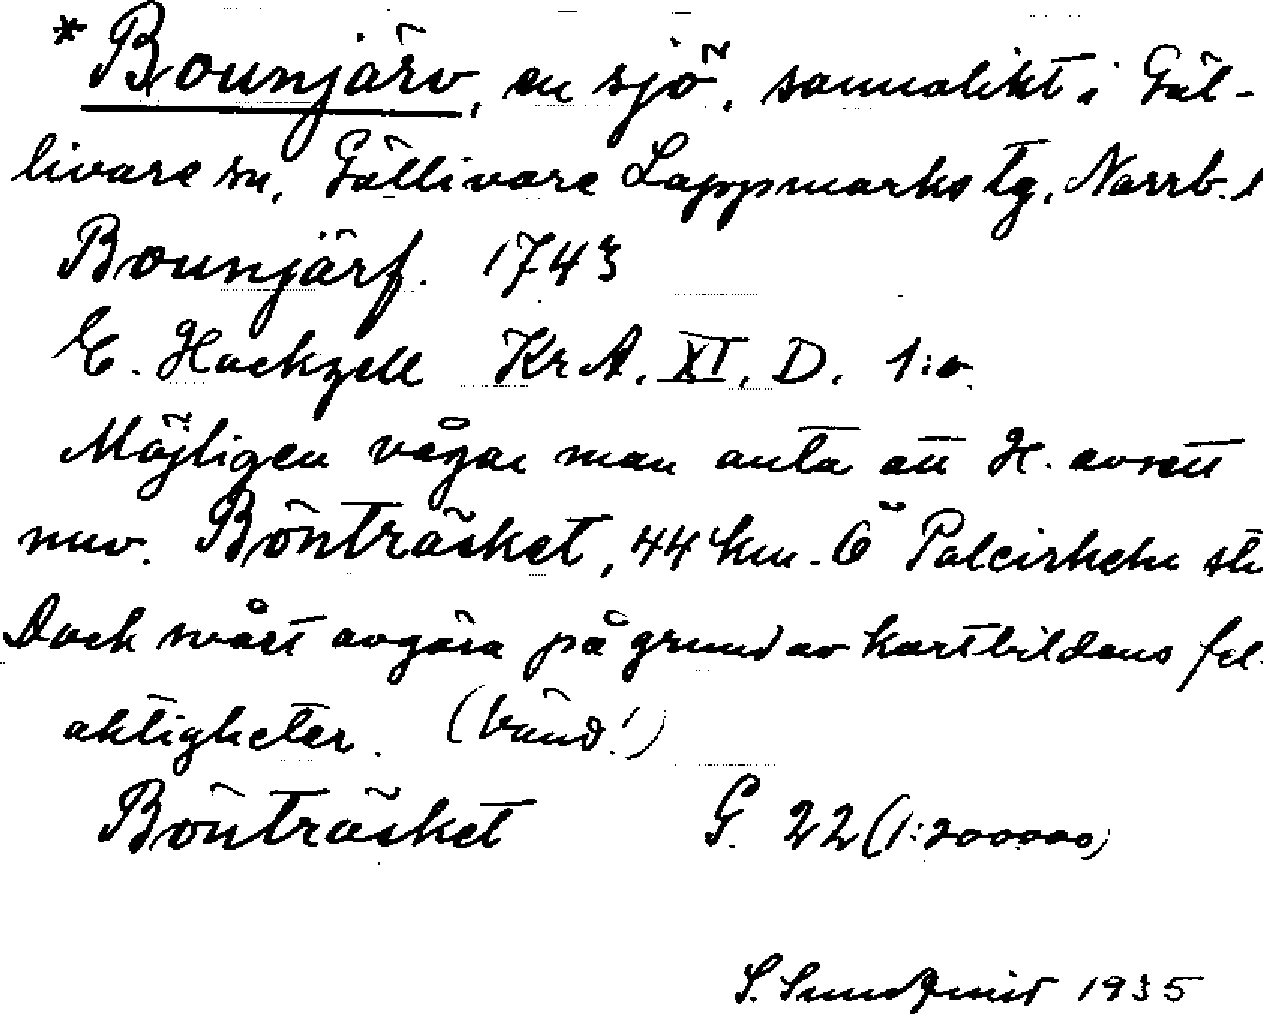 * Bounjärv, en sjö, sannolikt i Gäl-
livare sn, Gällivare Lappmarks tg, Norrb. l
Bounjärf. 1743
E. Hackzell KrA. XI, D. 1:a
Möjligen vågar man anta att H. avsett
nuv. Bönträsket, 44 km. Ö Polcirkeln stn
Dock svårt avgöra på grund av kartbildens fel-
aktigheter. (Vänd!)
Bönträsket G. 22 (1:200000)
S. 1935